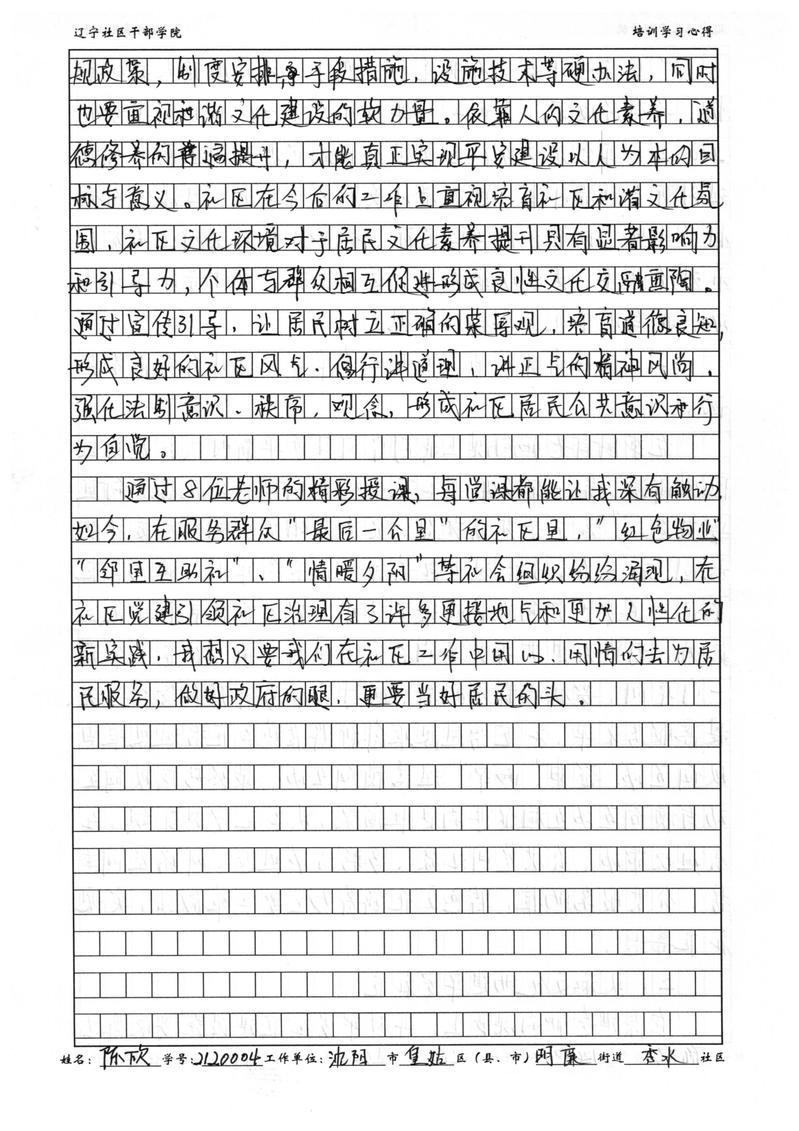 辽宁社区干部学院 培训学习心得
规政策，制度安排，手段措施，设施技术等硬办法，同时
也要重视和谐文化建设的软力量。依靠人的文化素养，道
德修养的普遍提升，才能真正实现平安建设以人为本的目
标与意义。社区在今后的工作上重视培育社区和谐文化氛
围，社区文化环境对于居民文化素养提升具有显著影响力
和引导力，个体与群众相互促进形成良性文化交融熏陶。
通过宣传引导，让居民树立正确的荣辱观，培育道德良知，
形成良好的社区风气、循行讲道理，讲正气的精神风尚。
强化法制意识、秩序，观念，形成社区居民公共意识和行
为自觉。
通过8位老师的精彩授课，每堂课都能让我深有触动
如今，在服务群众“最后一公里”的社区里，“红色物业”
“邻里互助社”、“情暖夕阳”等社会组织纷纷涌现，在
社区党建引领社区治理有了许多更接地气和更加人性化的
新实践，我想只要我们在社区工作中用心、用情的去为居
民服务，做好政府的腿，更要当好居民的头。
姓名：陈欣 学号：2120004 工作单位：沈阳 市 皇姑 区（县、市）明廉 街道 香水 社区